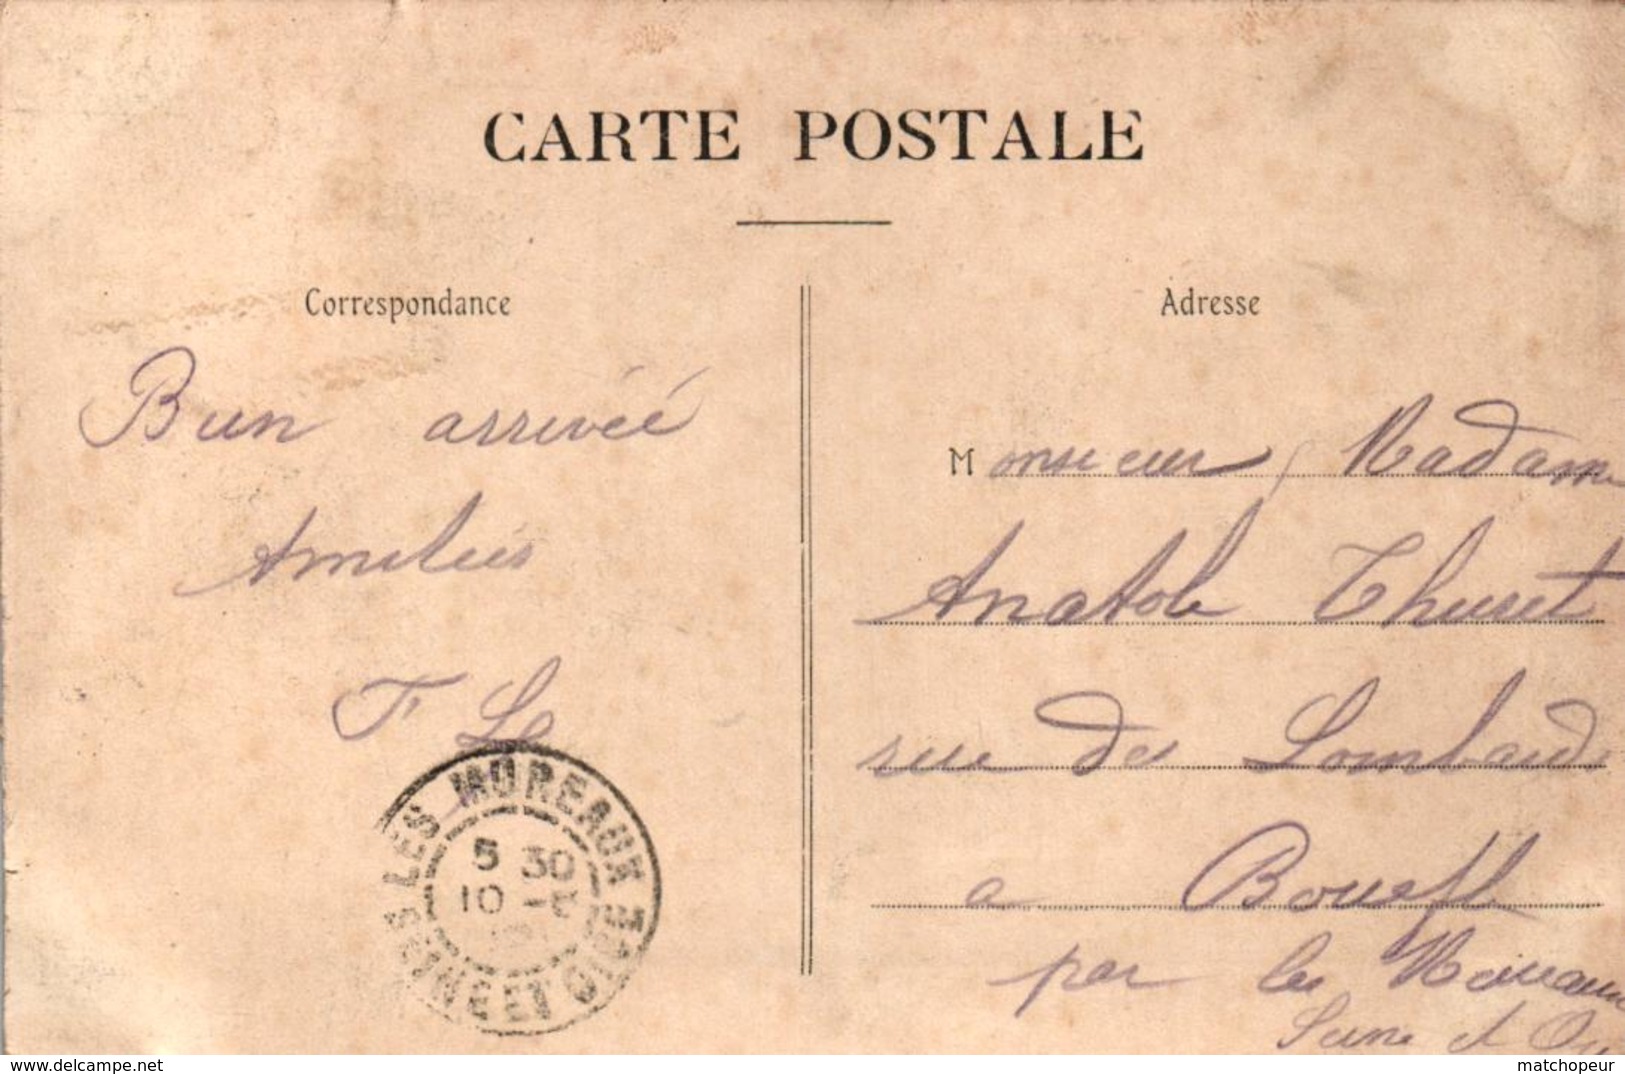 CARTE POSTALE
Correspondance
Bien arrivée
Amitiés
F Le
LES MUREAUX
SEINE ET OISE
5 30
10
Adresse
Monsieur Madam
Anatole Thuret
rue des Lombards
a Bouafle
par les Mureaux
Seine et Oi
www.delcampe.net
matchopeur